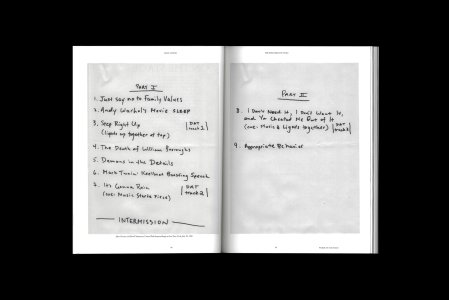 PART I
1. Just say no to Family Values
2. Andy Warhol's Movie SLEEP
3. Step Right Up
(Lights up together at top)
DAT
track 1
4. The Death of William Burroughs
5. Demons in the Details
6. Mark Twain' Keelboat Boasting Speech
7. It's Gonna Rain
(cue: Music Starts Piece)
DAT
track 2
INTERMISSION
PART II
8. I Don't Need It, I Don't Want It,
and You Cheated Me Out of It
(cue: Music & Lights together)
DAT
track 3
9. Appropriate Behavior